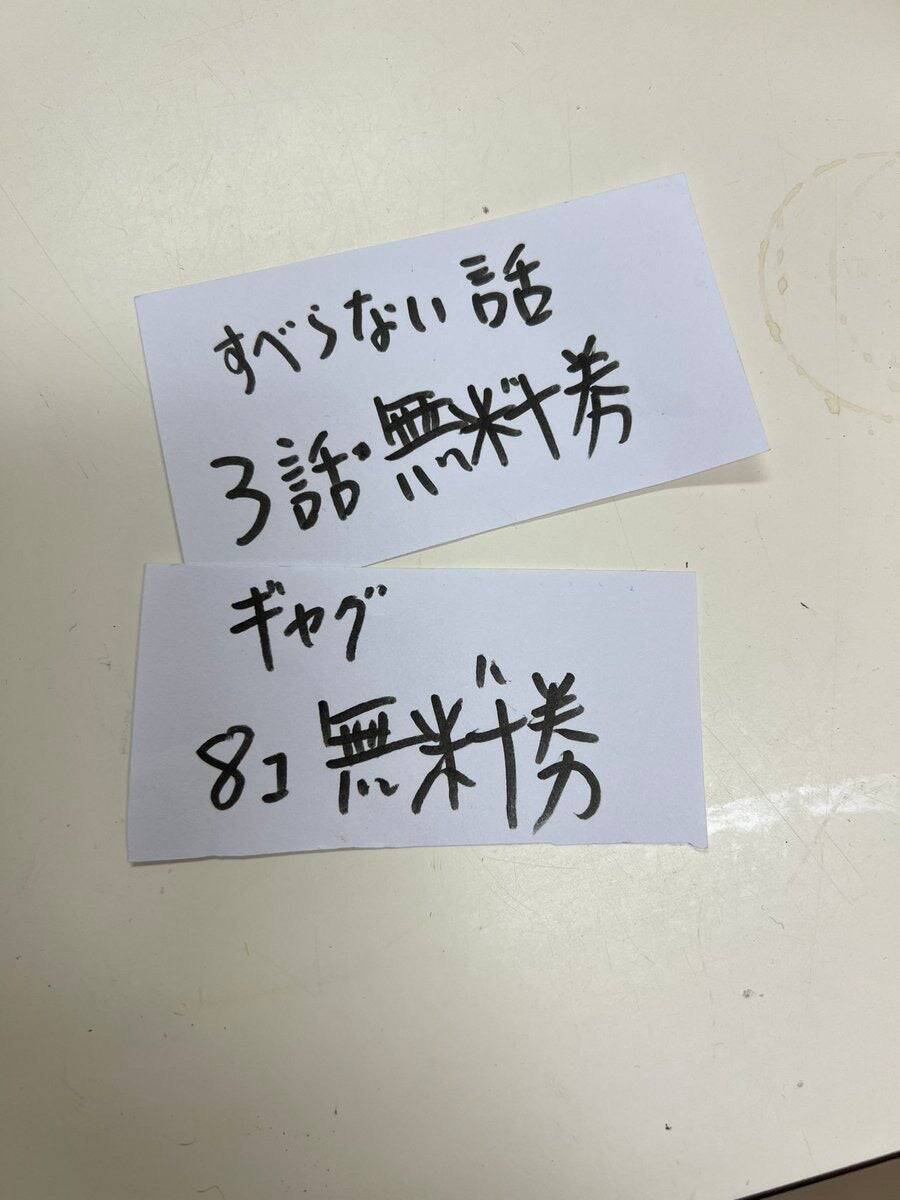 すべらない話
3話無料券
ギャグ
8コ無料券